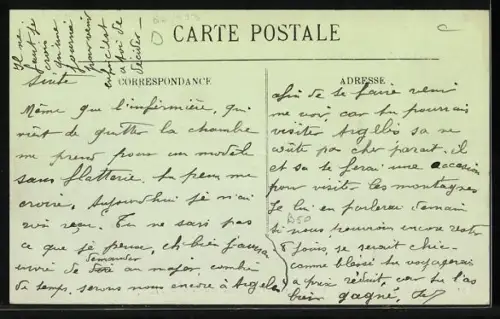 CARTE POSTALE
CORRESPONDANCE
ADRESSE
Il ne
faut
je
crois
qu'une
journée
pour venir
à toi de
décider -
Suite
Même que l'infirmière, qui
vient de quitter la chambre
me prend pour un modèle
sans flatterie, tu peux me
croire. Aujourd'hui je n'ai
rien reçu. Tu ne sais pas
ce que je pense, eh bien j'aurai
envie de demander au major, combien
de temps, serons nous encore à Argelès
afin de te faire venir
me voir, car tu pourrais
visiter Argelès sa ne
coûte pas cher parait-il
et sa te ferai une occasion
pour visiter les montagnes
Je lui en parlerai demain
si nous pouvions encore rester
8 jours, se serait chic
comme blessé tu voyagerais
a prix réduit, car tu l'as
bien gagné,
B50